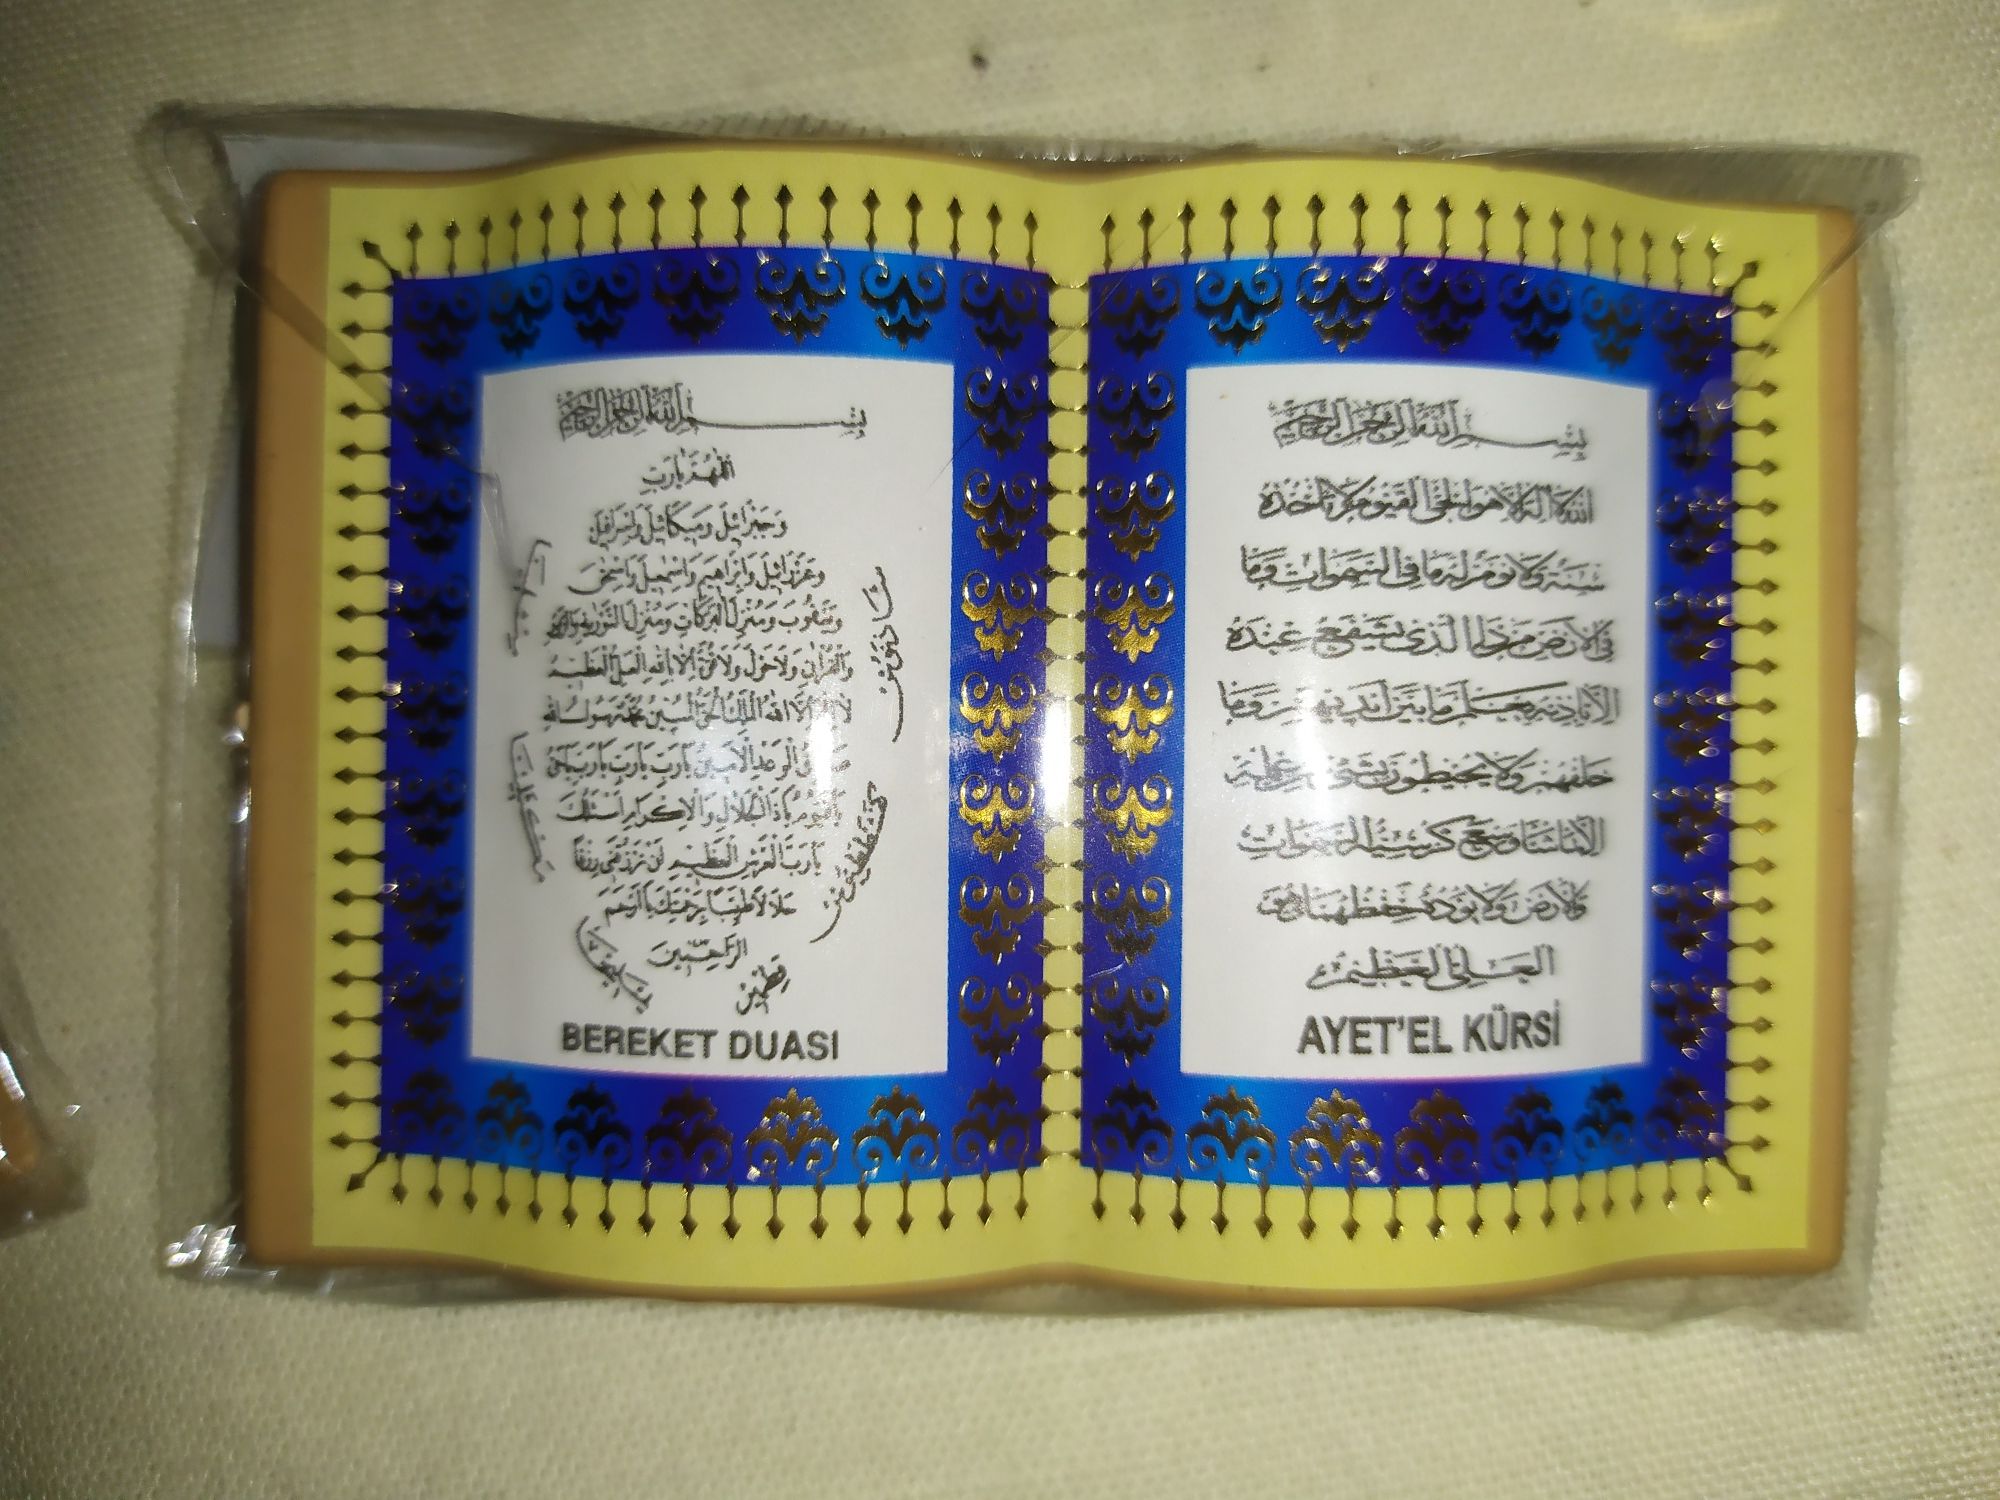 بسم الله الرحمن الرحيم
اللهم يا رب
وجبرائيل وميكائيل واسرافيل
وعزرائيل وابراهيم واسمعيل واسحق
ويعقوب ومنزل البركات ومنزل التورية
والقرآن ولا حول ولا قوة الا بالله العلي العظيم
لا اله الا الله الملك الحق المبين محمد رسول الله
الوعد الامين يا رب يا رب يا رب يا حي
يا قيوم يا ذا الجلال والاكرام اسئلك
يا رب العرش العظيم ان ترزقني رزقا
حلالا طيبا برحمتك يا ارحم
الراحمين
قطمير
BEREKET DUASI
بسم الله الرحمن الرحيم
الله لا اله الا هو الحي القيوم لا تأخذه
سنة ولا نوم له ما في السموات وما
في الارض من ذا الذي يشفع عنده
الا باذنه يعلم ما بين ايديهم وما
خلفهم ولا يحيطون بشئ من علمه
الا بما شاء وسع كرسيه السموات
والارض ولا يؤده حفظهما وهو
العلي العظيم
AYET'EL KÜRSİ